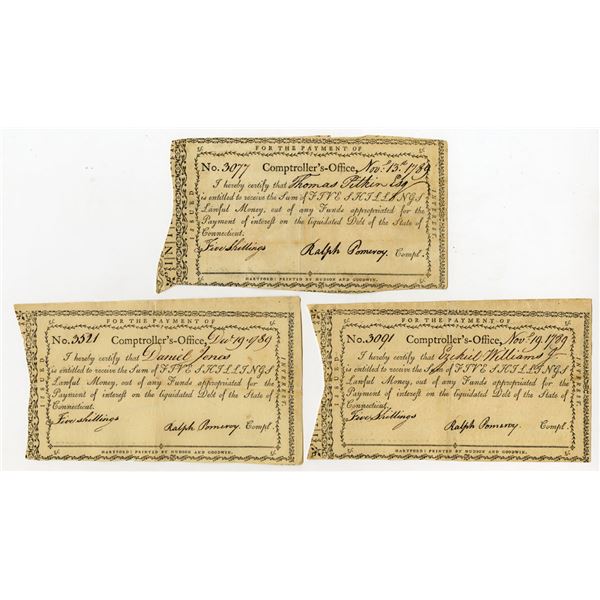 FOR THE PAYMENT OF
ISSUED
INTEREST.
No. 3077 Comptroller's-Office, Nov.r 13.th 1789
I hereby certify that Thomas Pitkin Esq
is entitled to receive the Sum of FIVE SHILLINGS
Lawful Money, out of any Funds appropriated for the
Payment of interest on the liquidated Debt of the State of
Connecticut.
Five Shillings Ralph Pomeroy Compl.
HARTFORD: PRINTED BY HUDSON AND GOODWIN.
FOR THE PAYMENT OF
ISSUED
INTEREST.
No. 3521 Comptroller's-Office, Dec 19 1789
I hereby certify that Daniel Jones
is entitled to receive the Sum of FIVE SHILLINGS
Lawful Money, out of any Funds appropriated for the
Payment of interest on the liquidated Debt of the State of
Connecticut.
Five shillings Ralph Pomeroy. Compl.
HARTFORD: PRINTED BY HUDSON AND GOODWIN.
FOR THE PAYMENT OF
ISSUED
INTEREST.
No. 3091 Comptroller's-Office, Nov.r 19 1789
I hereby certify that Ezekiel Williams
is entitled to receive the Sum of FIVE SHILLINGS
Lawful Money, out of any Funds appropriated for the
Payment of interest on the liquidated Debt of the State of
Connecticut.
Five Shillings Ralph Pomeroy. Compl.
HARTFORD: PRINTED BY HUDSON AND GOODWIN.